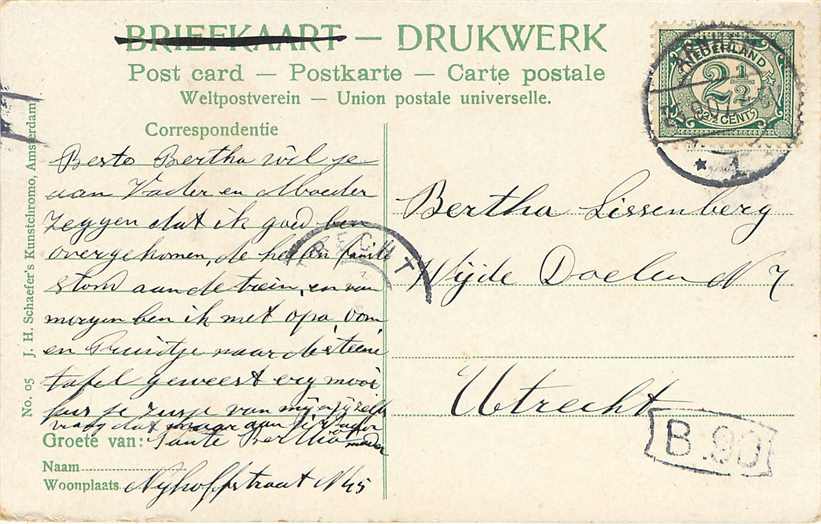 BRIEFKAART — DRUKWERK
Post card — Postkarte — Carte postale
Weltpostverein — Union postale universelle.
Correspondentie
Beste Bertha wil je
aan Vader en Moeder
zeggen dat ik goed ben
overgekomen, de heele
stond aan de trein, en van
morgen ben ik met opa, oom
en naar de steene
tafel geweest erg mooi
je zusje van mij
vraag dat maar aan je
Groete van: Tante
Naam
Woonplaats Nyhoffstraat N 45
No. 05 J. H. Schaefer's Kunstchromo, Amsterdam
NEDERLAND
2½
2½ CENT
1
TRECHT
Bertha Lissenberg
Wijde Doelen N 7
Utrecht
B.90